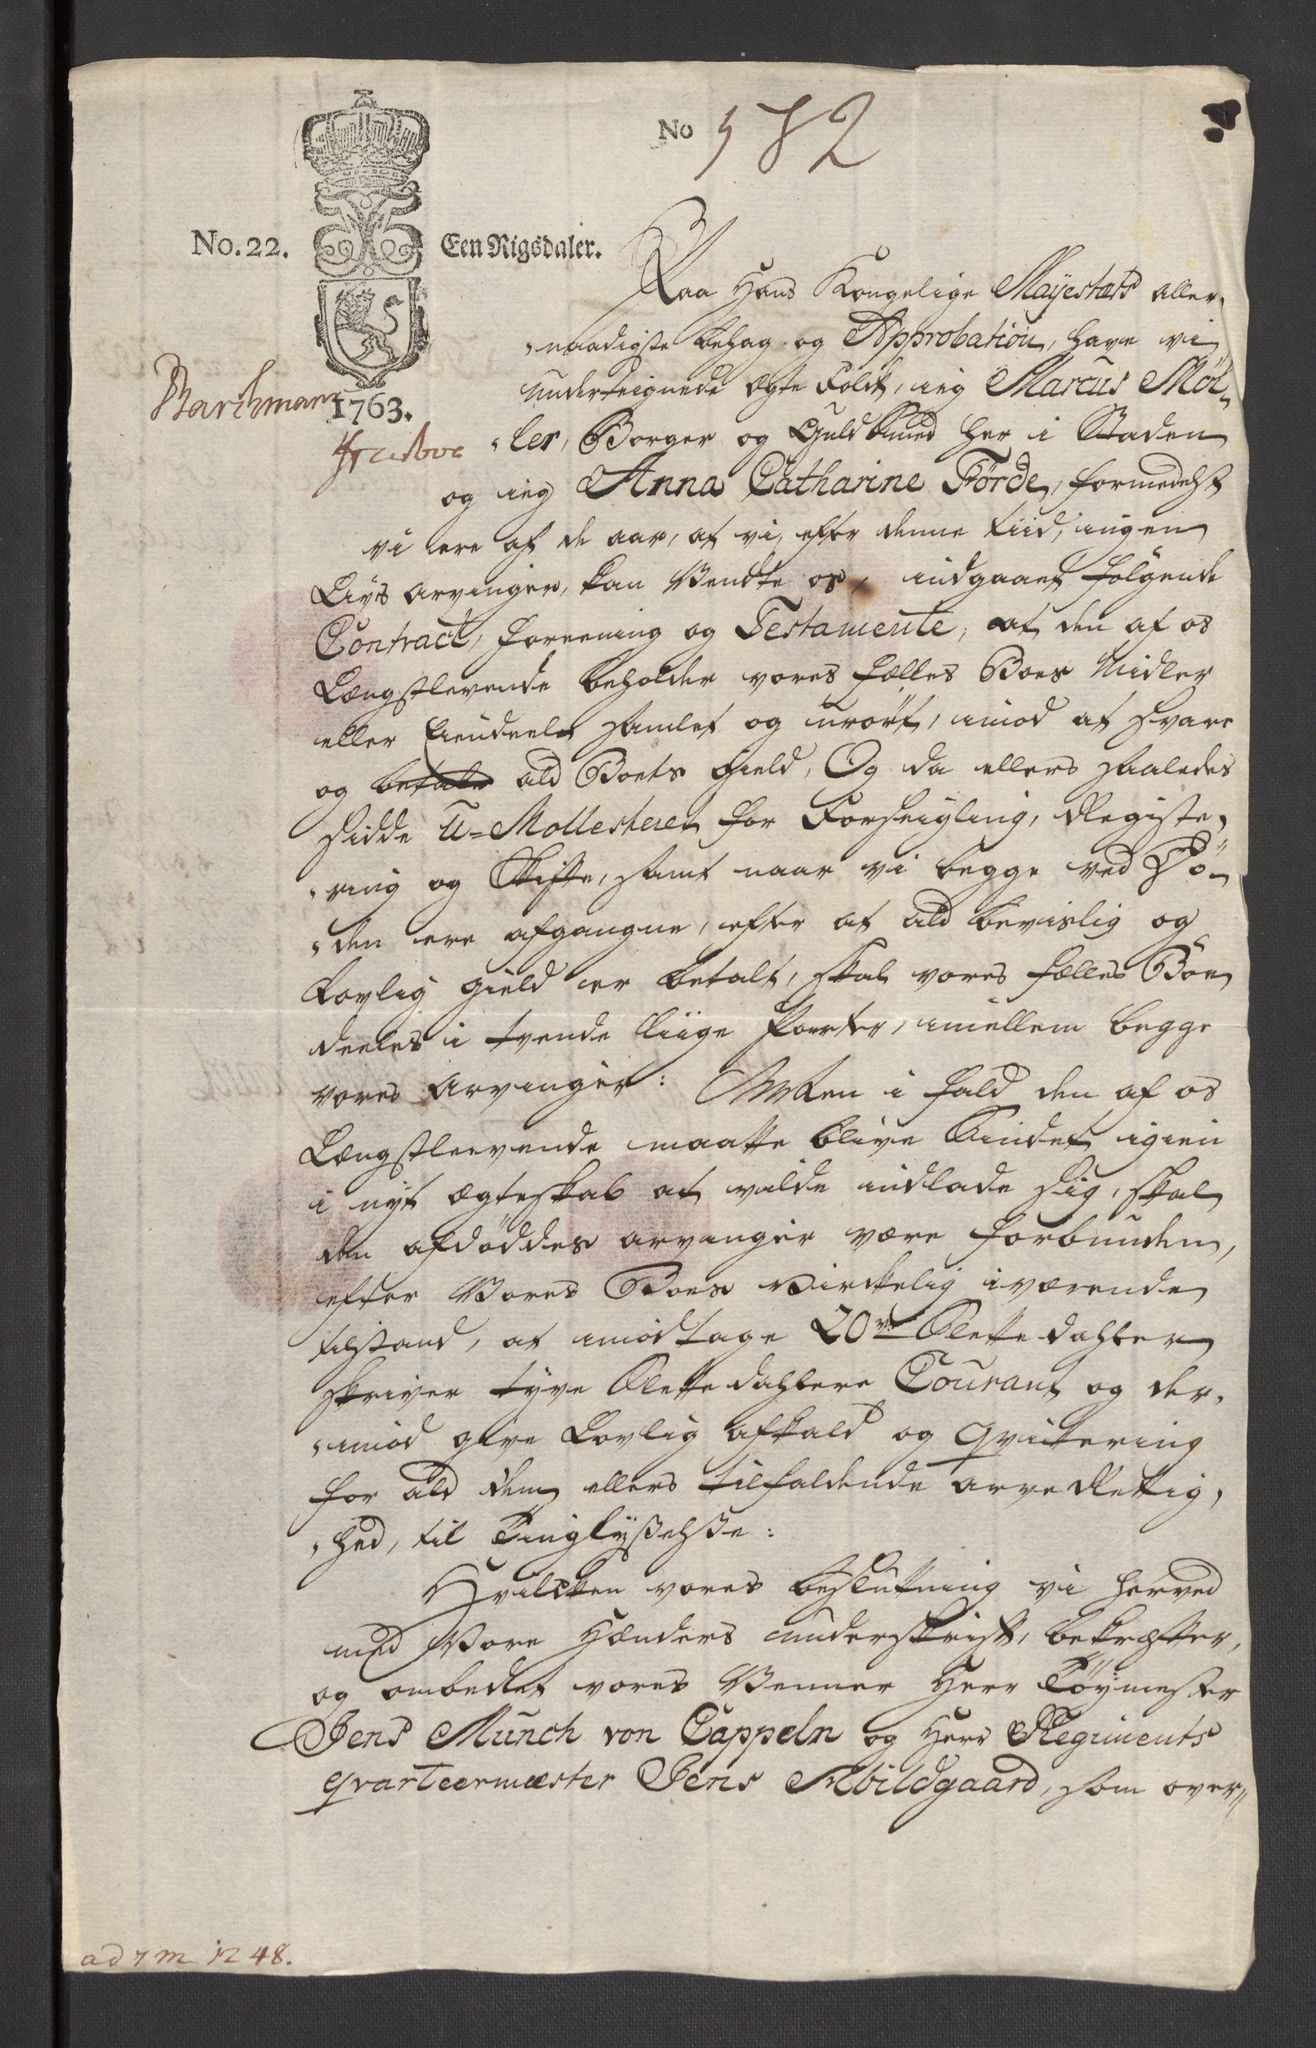 No 582
No. 22. Een Rigsdaler.
1763.
Barthmann
Paa Hans Kongelige Mayestæts aller-
naadigste behag og Approbation, have vi
underteignede ægte Folck, ieg Marcus Møl-
ler, Borger og Guldsmed her i Staden
og ieg Anna Catharine Förde, formedelst
vi ere af de aar, at vi, efter denne tiid, ingen
Livs arvinger, kan Vendte os, indgaaet følgende
Contract, foreening og Testamente, at den af os
Længstlevende beholder vores fælles Boes Midler
eller Eiendeele samlet og urört, imod at svare
og betale ald Boets gield, Og da ellers saaledes
sidde U-Mollesteret for Forseigling, Registe-
ring og Skifte, samt naar vi begge ved Dö-
den ere afgangne, efter at ald bevislig og
Lovlig gield er betalt, skal vores fælles Boe
deeles i tvende liige Parter, imellem begge
vores Arvinger: Men i fald den af os
Længstleevende maatte blive sindet igien
i nyt ægteskab at ville indlade sig, skal
den afdöddes arvinger være forbunden,
efter Vores Boes virkelig iværende
tilstand, at imodtage 20ve Slettedahler
skriver tyve Slettedahlere Courant og der-
imod give Lovlig afkald og Qvittering
for ald dem ellers tilfaldende arve Rettig-
hed, til Tinglyßelße:
Hvilcken vores beslutning vi herved
med Vore Hænders underskrift, bekræfter,
og ombedet vores Venner Herr Töymester
Jens Munch von Cappeln og Herr Regiments
qvarteermester Jens Abildgaard, som over-
ad 7 m 12 48.